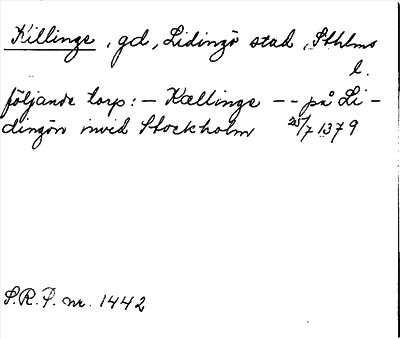 Killinge, gd, Lidingö stad, Sthlms
l.
följande torp: – Kællinge – – på Li –
dingön invid Stockholm 25/7 1379
S.R.P. nr. 1442